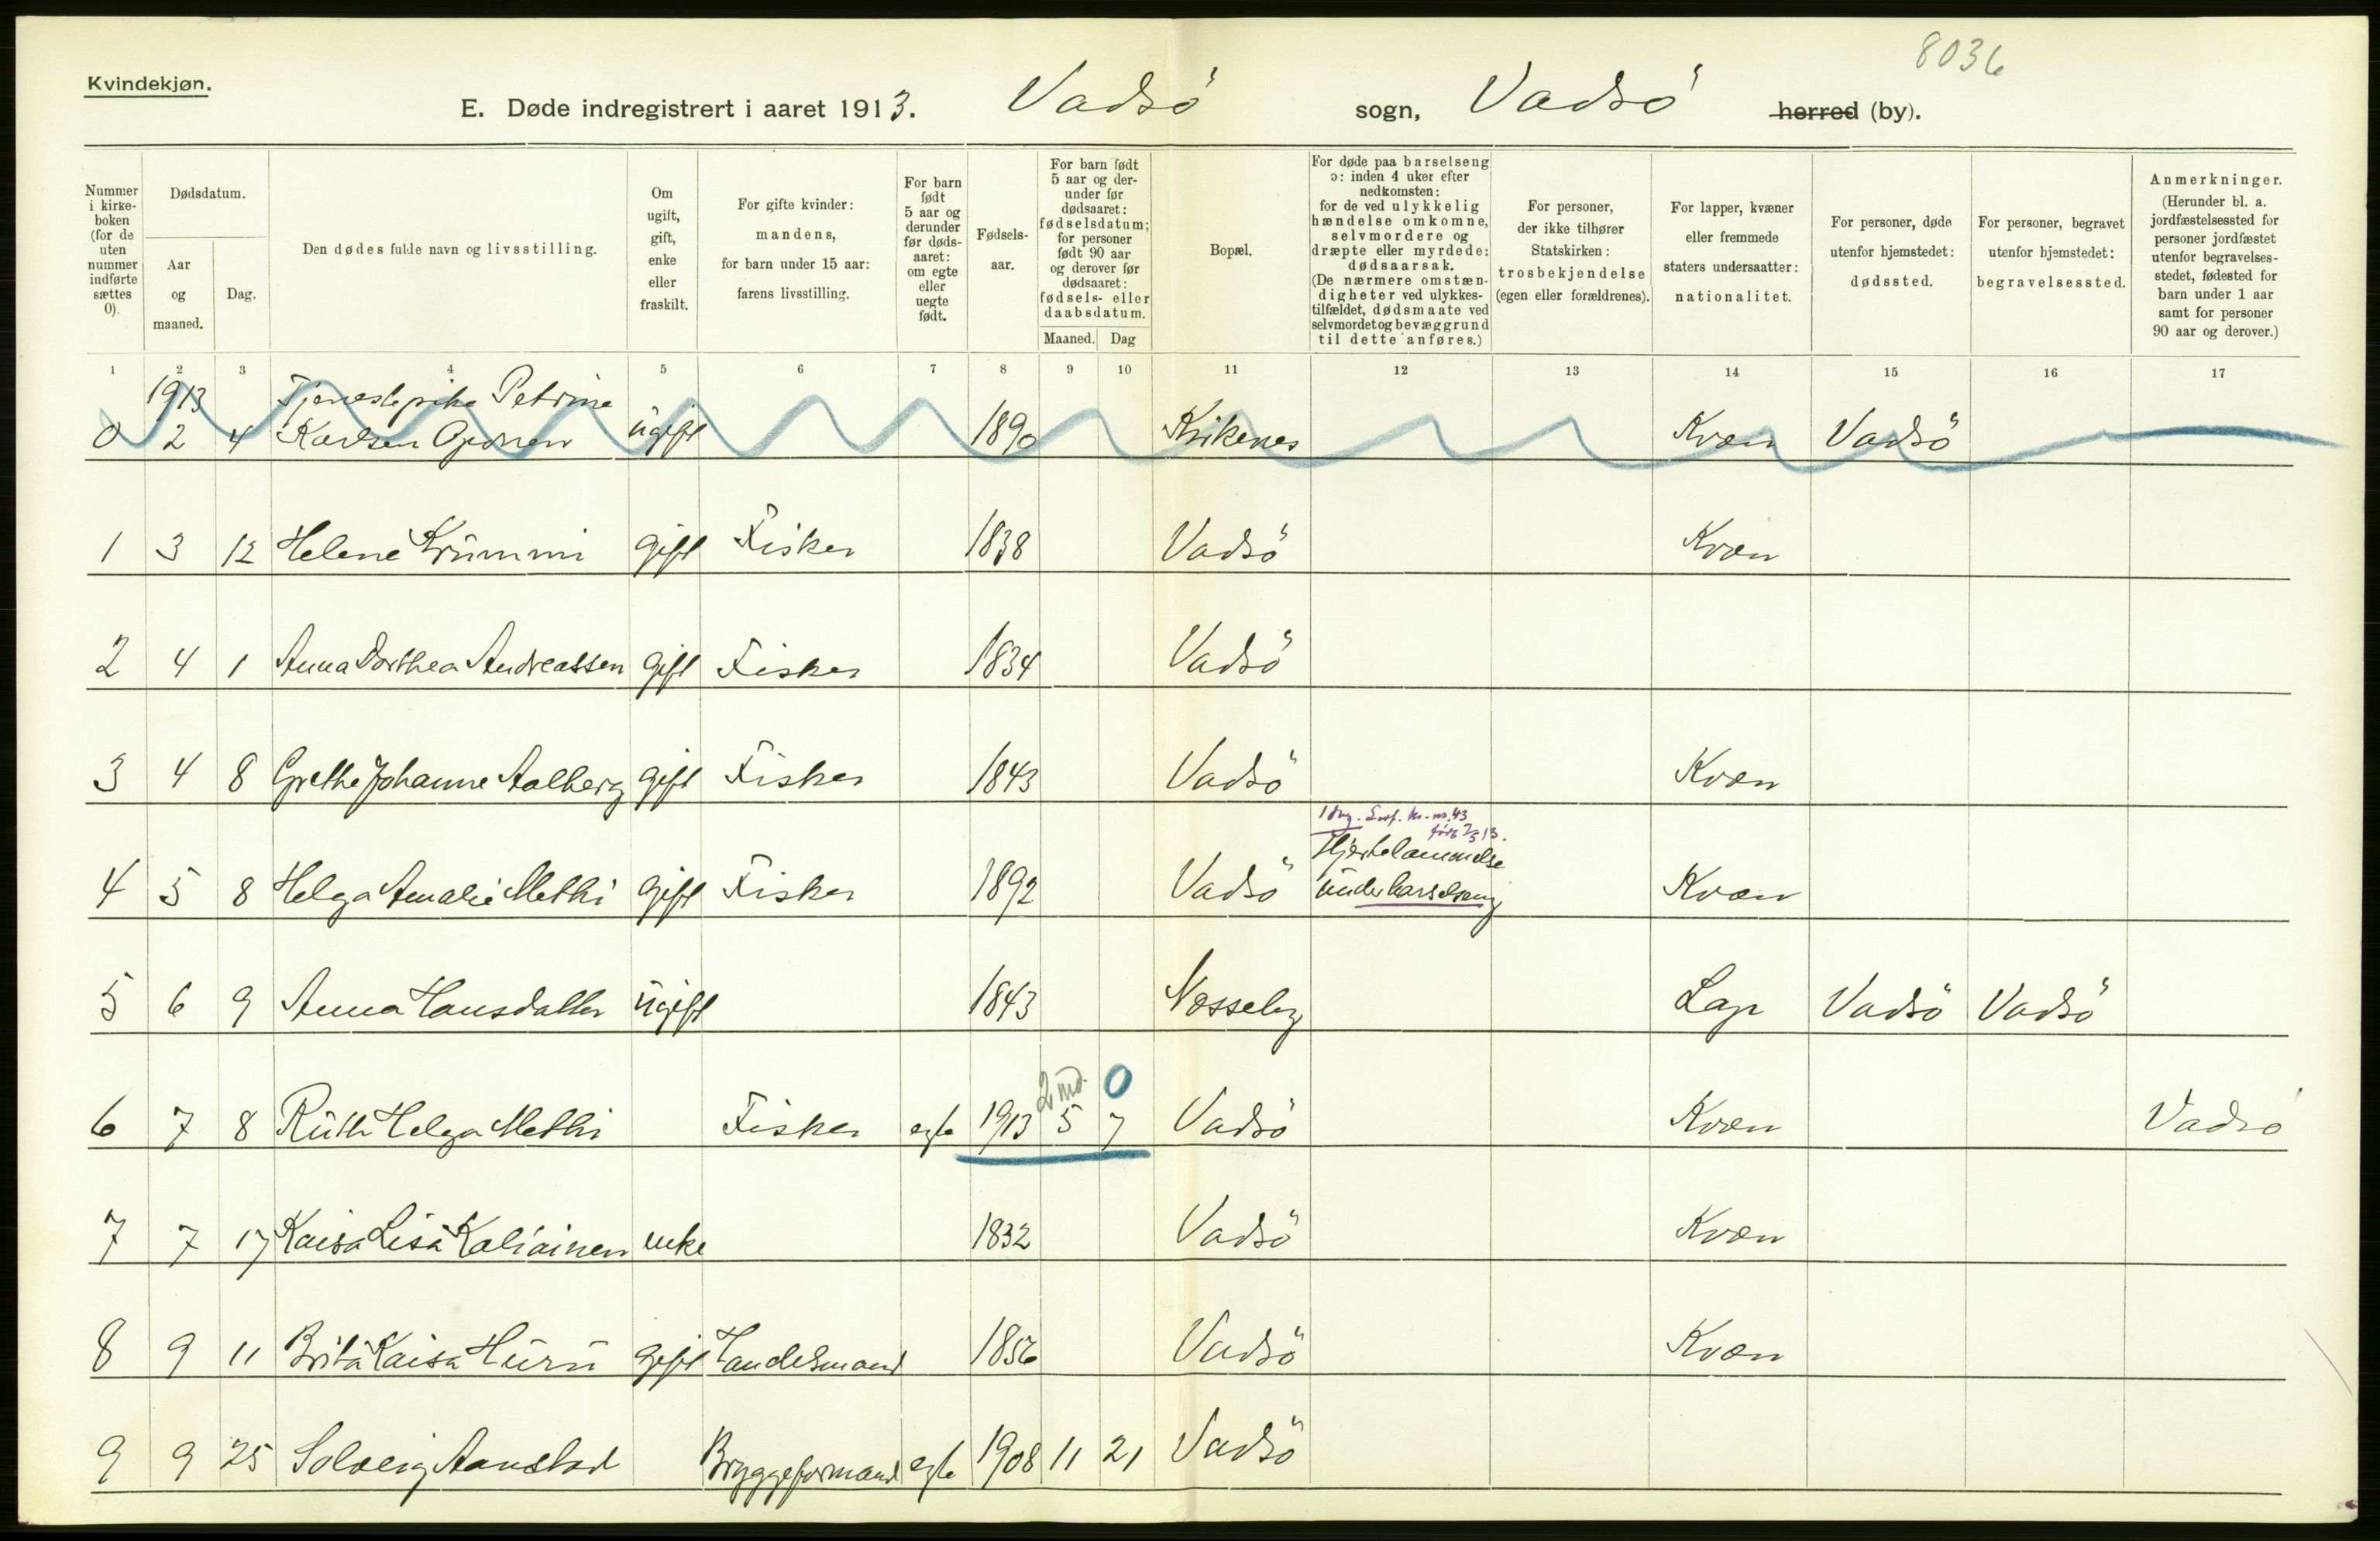 8036
Kvindekjøn.
E. Døde indregistrert i aaret 1913. Vadsö sogn, Vadsö herred (by).
Nummer i kirke-boken (for de uten nummer indførte sættes 0).
Dødsdatum.
Aar og maaned.
Dag.
Den dødes fulde navn og livsstilling.
Om ugift, gift, enke eller fraskilt.
For gifte kvinder: mandens, for barn under 15 aar: farens livsstilling.
For barn født 5 aar og derunder før døds-aaret: om egte eller uegte født.
Fødsels-aar.
For barn født 5 aar og der-under før dødsaaret: fødselsdatum; for personer født 90 aar og derover før dødsaaret: fødsels- eller daabsdatum.
Maaned. Dag
Bopæl.
For døde paa barselseng ɔ: inden 4 uker efter nedkomsten: for de ved ulykkelig hændelse omkomne, selvmordere og dræpte eller myrdede: dødsaarsak. (De nærmere omstæn-digheter ved ulykkes-tilfældet, dødsmaate ved selvmordet og bevæggrund til dette anføres.)
For personer, der ikke tilhører Statskirken: trosbekjendelse (egen eller forældrenes).
For lapper, kvæner eller fremmede staters undersaatter: nationalitet.
For personer, døde utenfor hjemstedet: dødssted.
For personer, begravet utenfor hjemstedet: begravelsessted.
Anmerkninger. (Herunder bl. a. jordfæstelsessted for personer jordfæstet utenfor begravelses-stedet, fødested for barn under 1 aar samt for personer 90 aar og derover.)
1 2 3 4 5 6 7 8 9 10 11 12 13 14 15 16 17
1913 Tjenestepike Petrine
0 2 4 Karlsen ugift 1890 Kirkenes Kvæn Vadsö
1 3 12 Helene Krummi gift Fisker 1838 Vadsö Kvæn
2 4 1 Anna Dorthea Andreassen gift Fisker 1834 Vadsö
3 4 8 Grethe Johanne Aalberg gift Fisker 1843 Vadsö Kvæn
Hjertelammelse
4 5 8 Helga Amalie Methi gift Fisker 1892 Vadsö under barselseng Kvæn
5 6 9 Anna Hansdatter ugift 1843 Næsseby Lap Vadsö Vadsö
2 md. 0
6 7 8 Ruth Helga Methi Fisker egte 1913 5 7 Vadsö Kvæn Vadsö
7 7 17 Kaisa Lisa Kaliainen enke 1832 Vadsö Kvæn
8 9 11 Brita Kaisa Huru gift Handelsmand 1856 Vadsö Kvæn
9 9 25 Solveig Aanstad Bryggeformand egte 1908 11 21 Vadsö